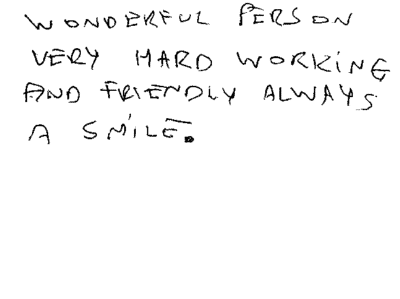 WONDERFUL PERSON
VERY HARD WORKING
AND FRIENDLY ALWAYS
A SMILE.